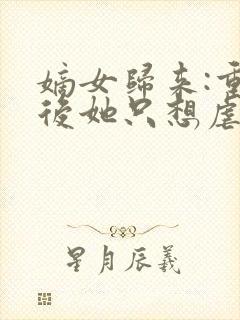 嫡女歸來:重
後她只想虐
星月辰羲